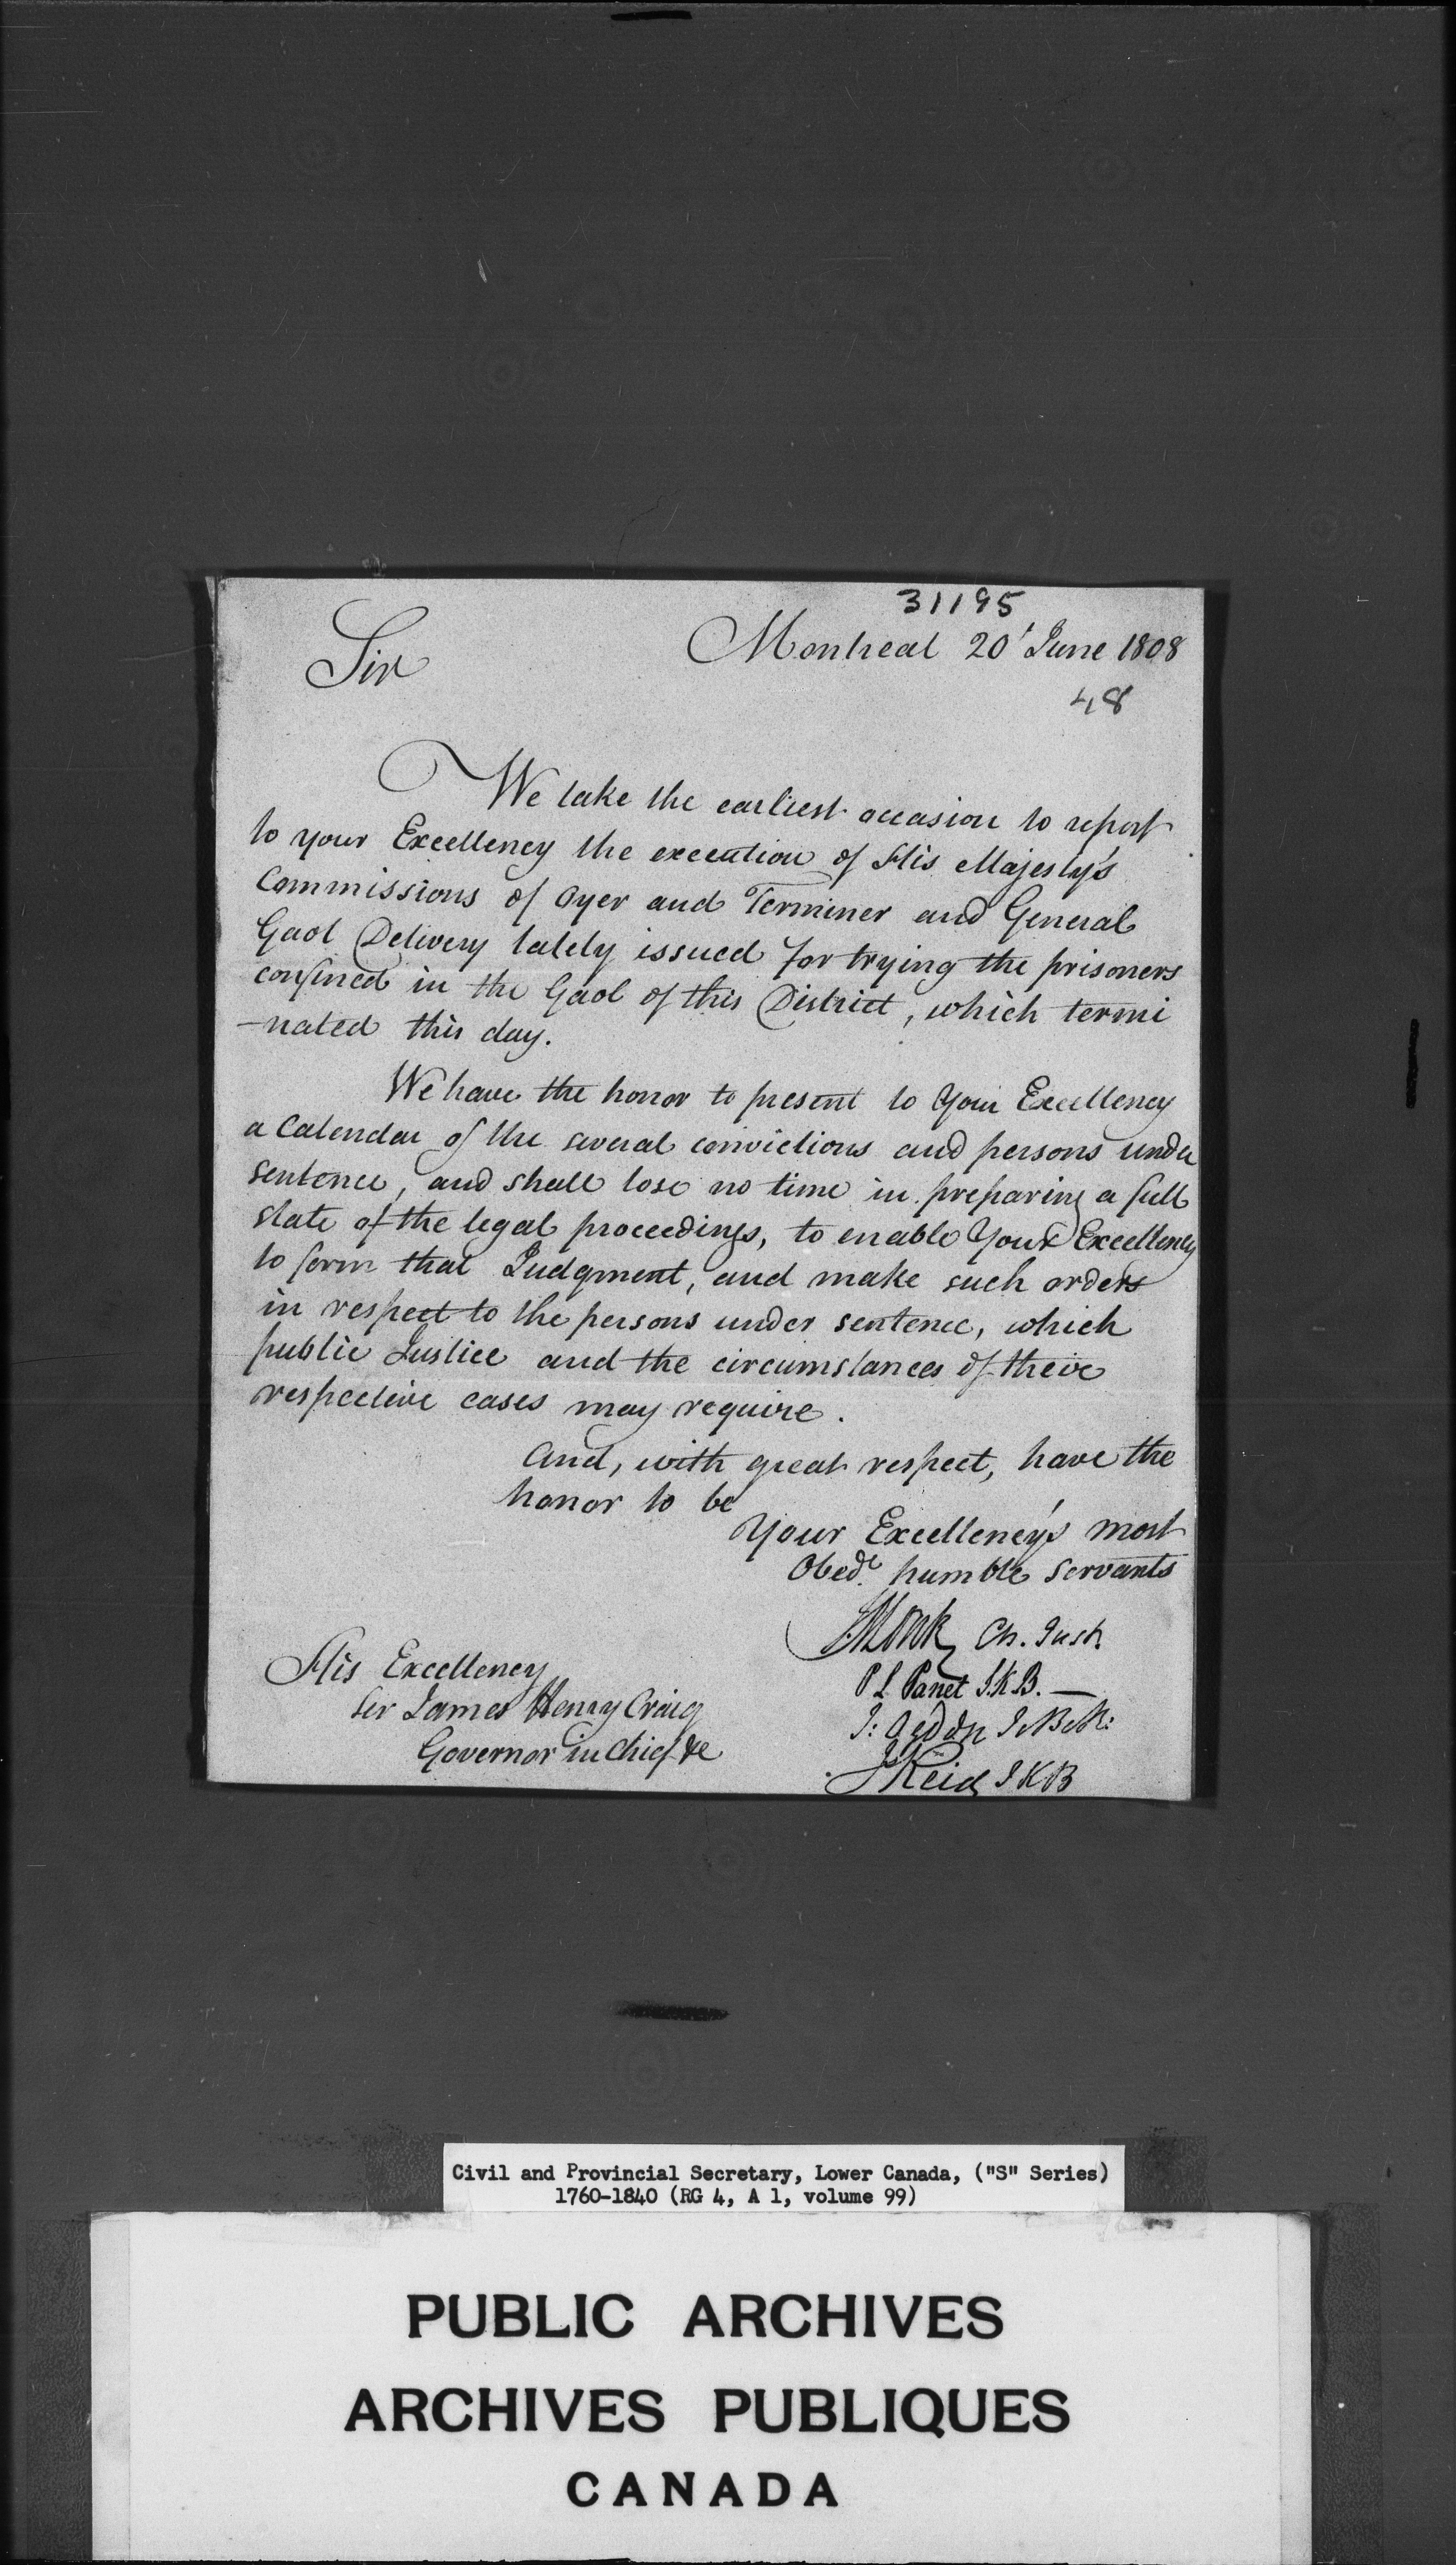 31195
Montreal 20' June 1808
Sir
48
We take the earliest occasion to report
to your Excellency the execution of His Majesty's
Commissions of Oyer and Terminer and General
Gaol Delivery lately issued for trying the prisoners
confined in the Gaol of this District, which termi
-nated this day.
We have the honor to present to Your Excellency
a Calendar of the several convictions and persons under
sentence, and shall lose no time in preparing a full
state of the legal proceedings, to enable Your Excellency
to form that Judgment, and make such orders
in respect to the persons under sentence, which
public Justice and the circumstances of their
respective cases may require.
And, with great respect, have the
honor to be
Your Excellency's most
Obedt. humble servants
J Monk Ch. Just
P L Panet J.K.B. —
I: Ogden
J Reid J K B
His Excellency
Sir James Henry Craig
Governor in Chief &c
Civil and Provincial Secretary, Lower Canada, ("S" Series)
1760-1840 (RG 4, A 1, volume 99)
PUBLIC ARCHIVES
ARCHIVES PUBLIQUES
CANADA